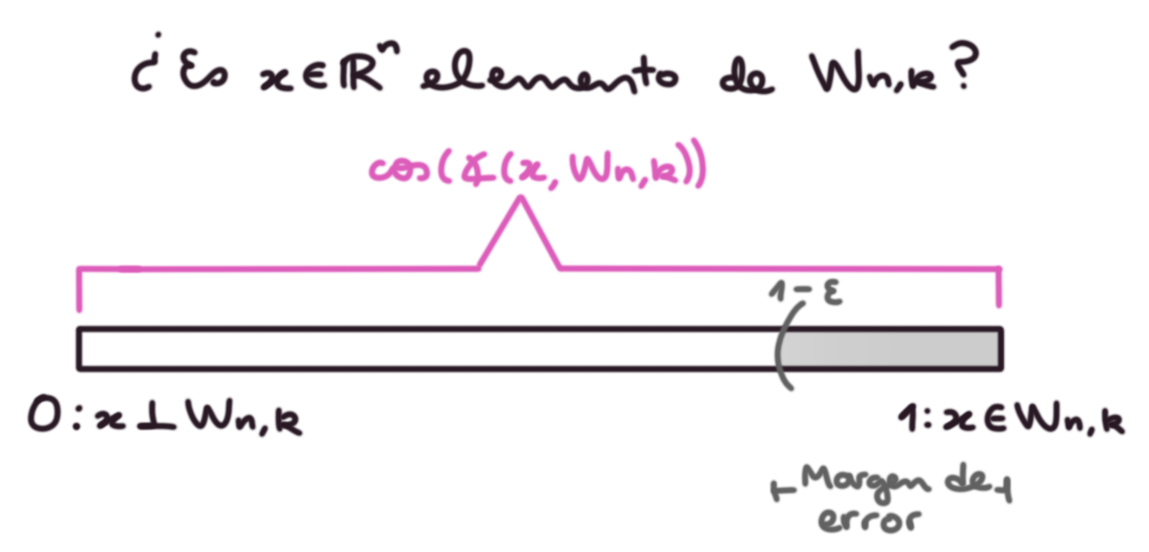 ¿Es x∈ℝⁿ elemento de Wn,k?
cos(∡(x, Wn,k))
1-ε
0: x ⊥ Wn,k
1: x ∈ Wn,k
Margen de
error